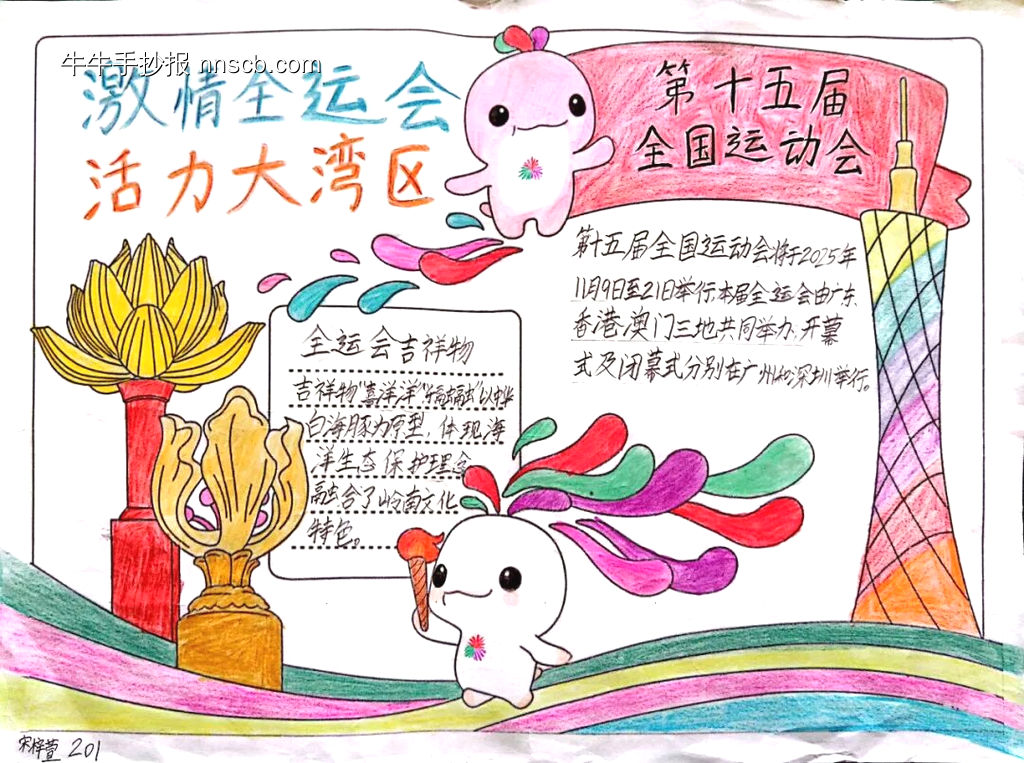 牛牛手抄报 nnscb.com
激情全运会
活力大湾区
第十五届
全国运动会
第十五届全国运动会将于2025年
11月9日至21日举行,本届全运会由广东、
香港、澳门三地共同举办,开幕
式及闭幕式分别在广州和深圳举行。
全运会吉祥物
吉祥物"喜洋洋""融融"以中华
白海豚为原型，体现海
洋生态保护理念
融合了岭南文化
特色。
宋梓萱 201